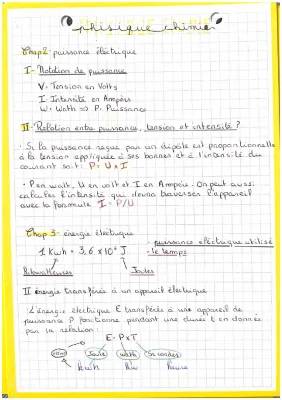 physique chimie
Chap 2: puissance électrique
I - Notation de puissance
V: Tension en Volts
I: Intensité en Ampère
W: Watth => P: Puissance
II - Relation entre puissance, tension et intensité ?
• Si la puissance reçue par un dipôle est proportionnelle
à la tension appliquée à ses bornes et à l'intensité du
courant soit: P = U x I
• P en watt, U en volt et I en Ampère. On peut aussi
calculer l'intensité qui devra traverser l'appareil
avec la formule I = P/U
Chap 3: énergie électrique
1 Kwh = 3,6 x 10⁶ J
- puissance électrique utilisé
- le temps
Kilowattheures
Joules
II énergie transférée à un appareil électrique
L'énergie électrique E transférée à une appareil de
puissance P fonctionne pendant une durée t en donnée
par sa relation:
E = P x T
Joule watth Secondes
kwh kw heure